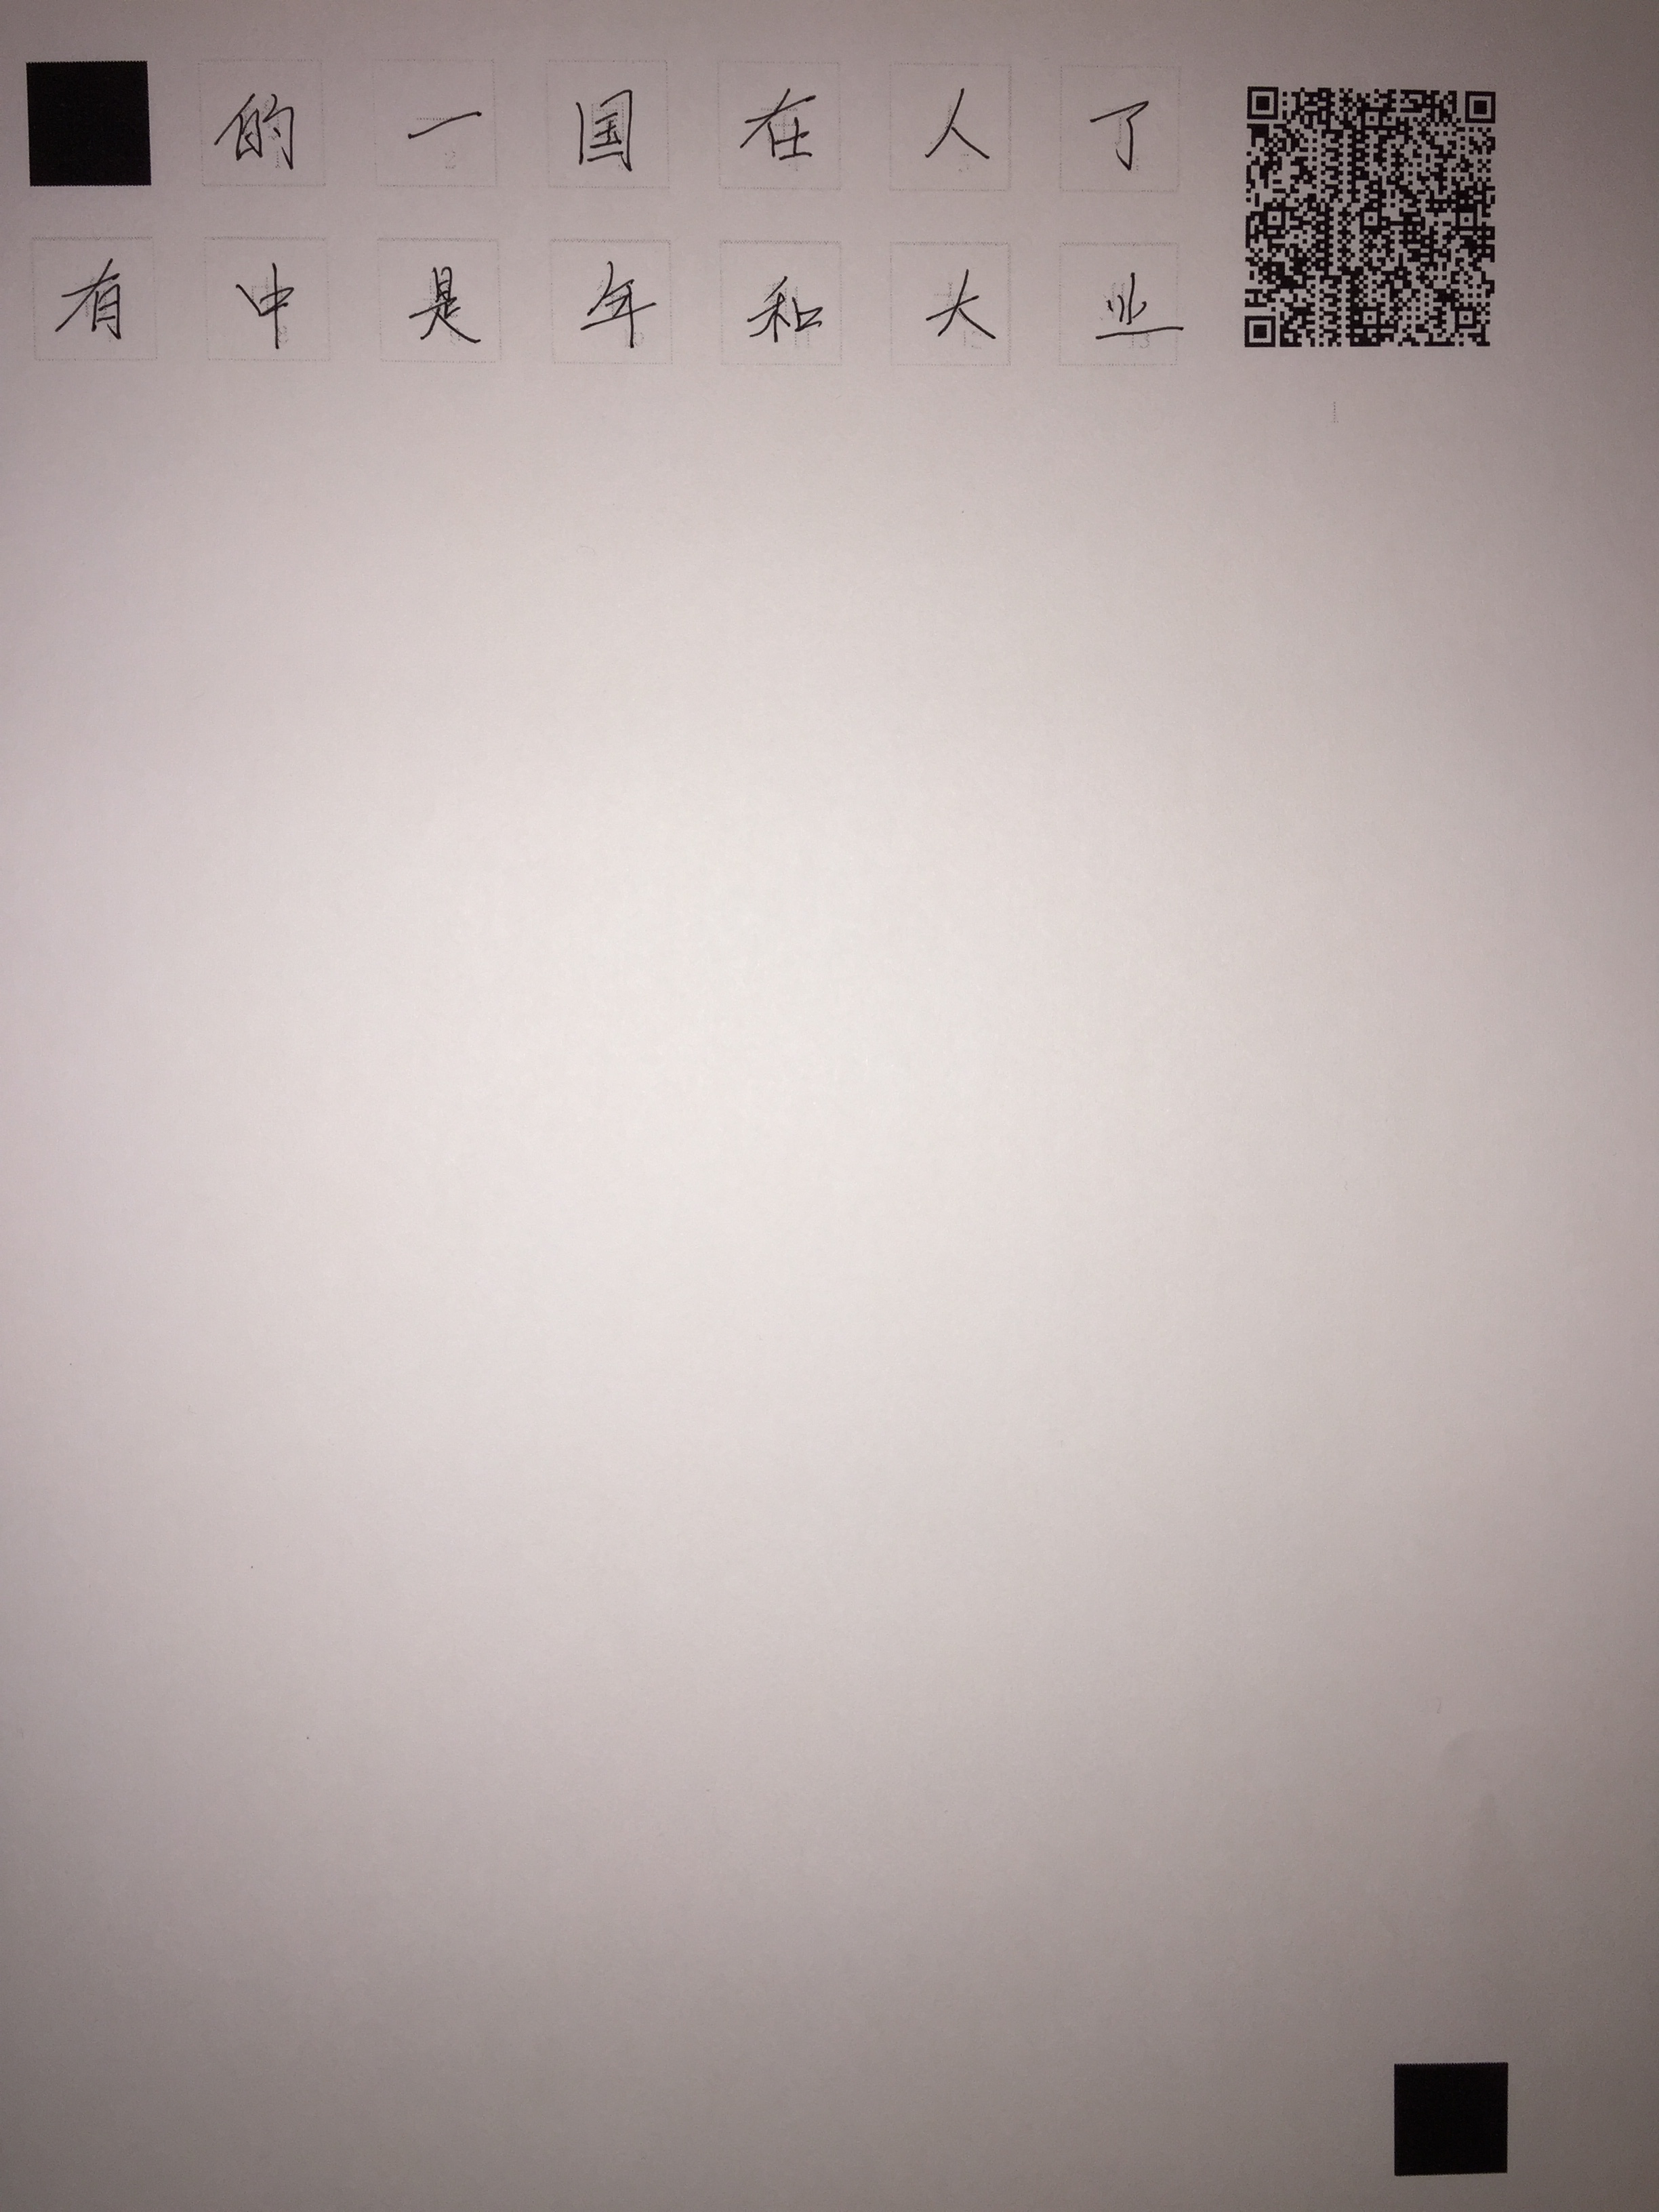 的一国在人了
有中是年和大业